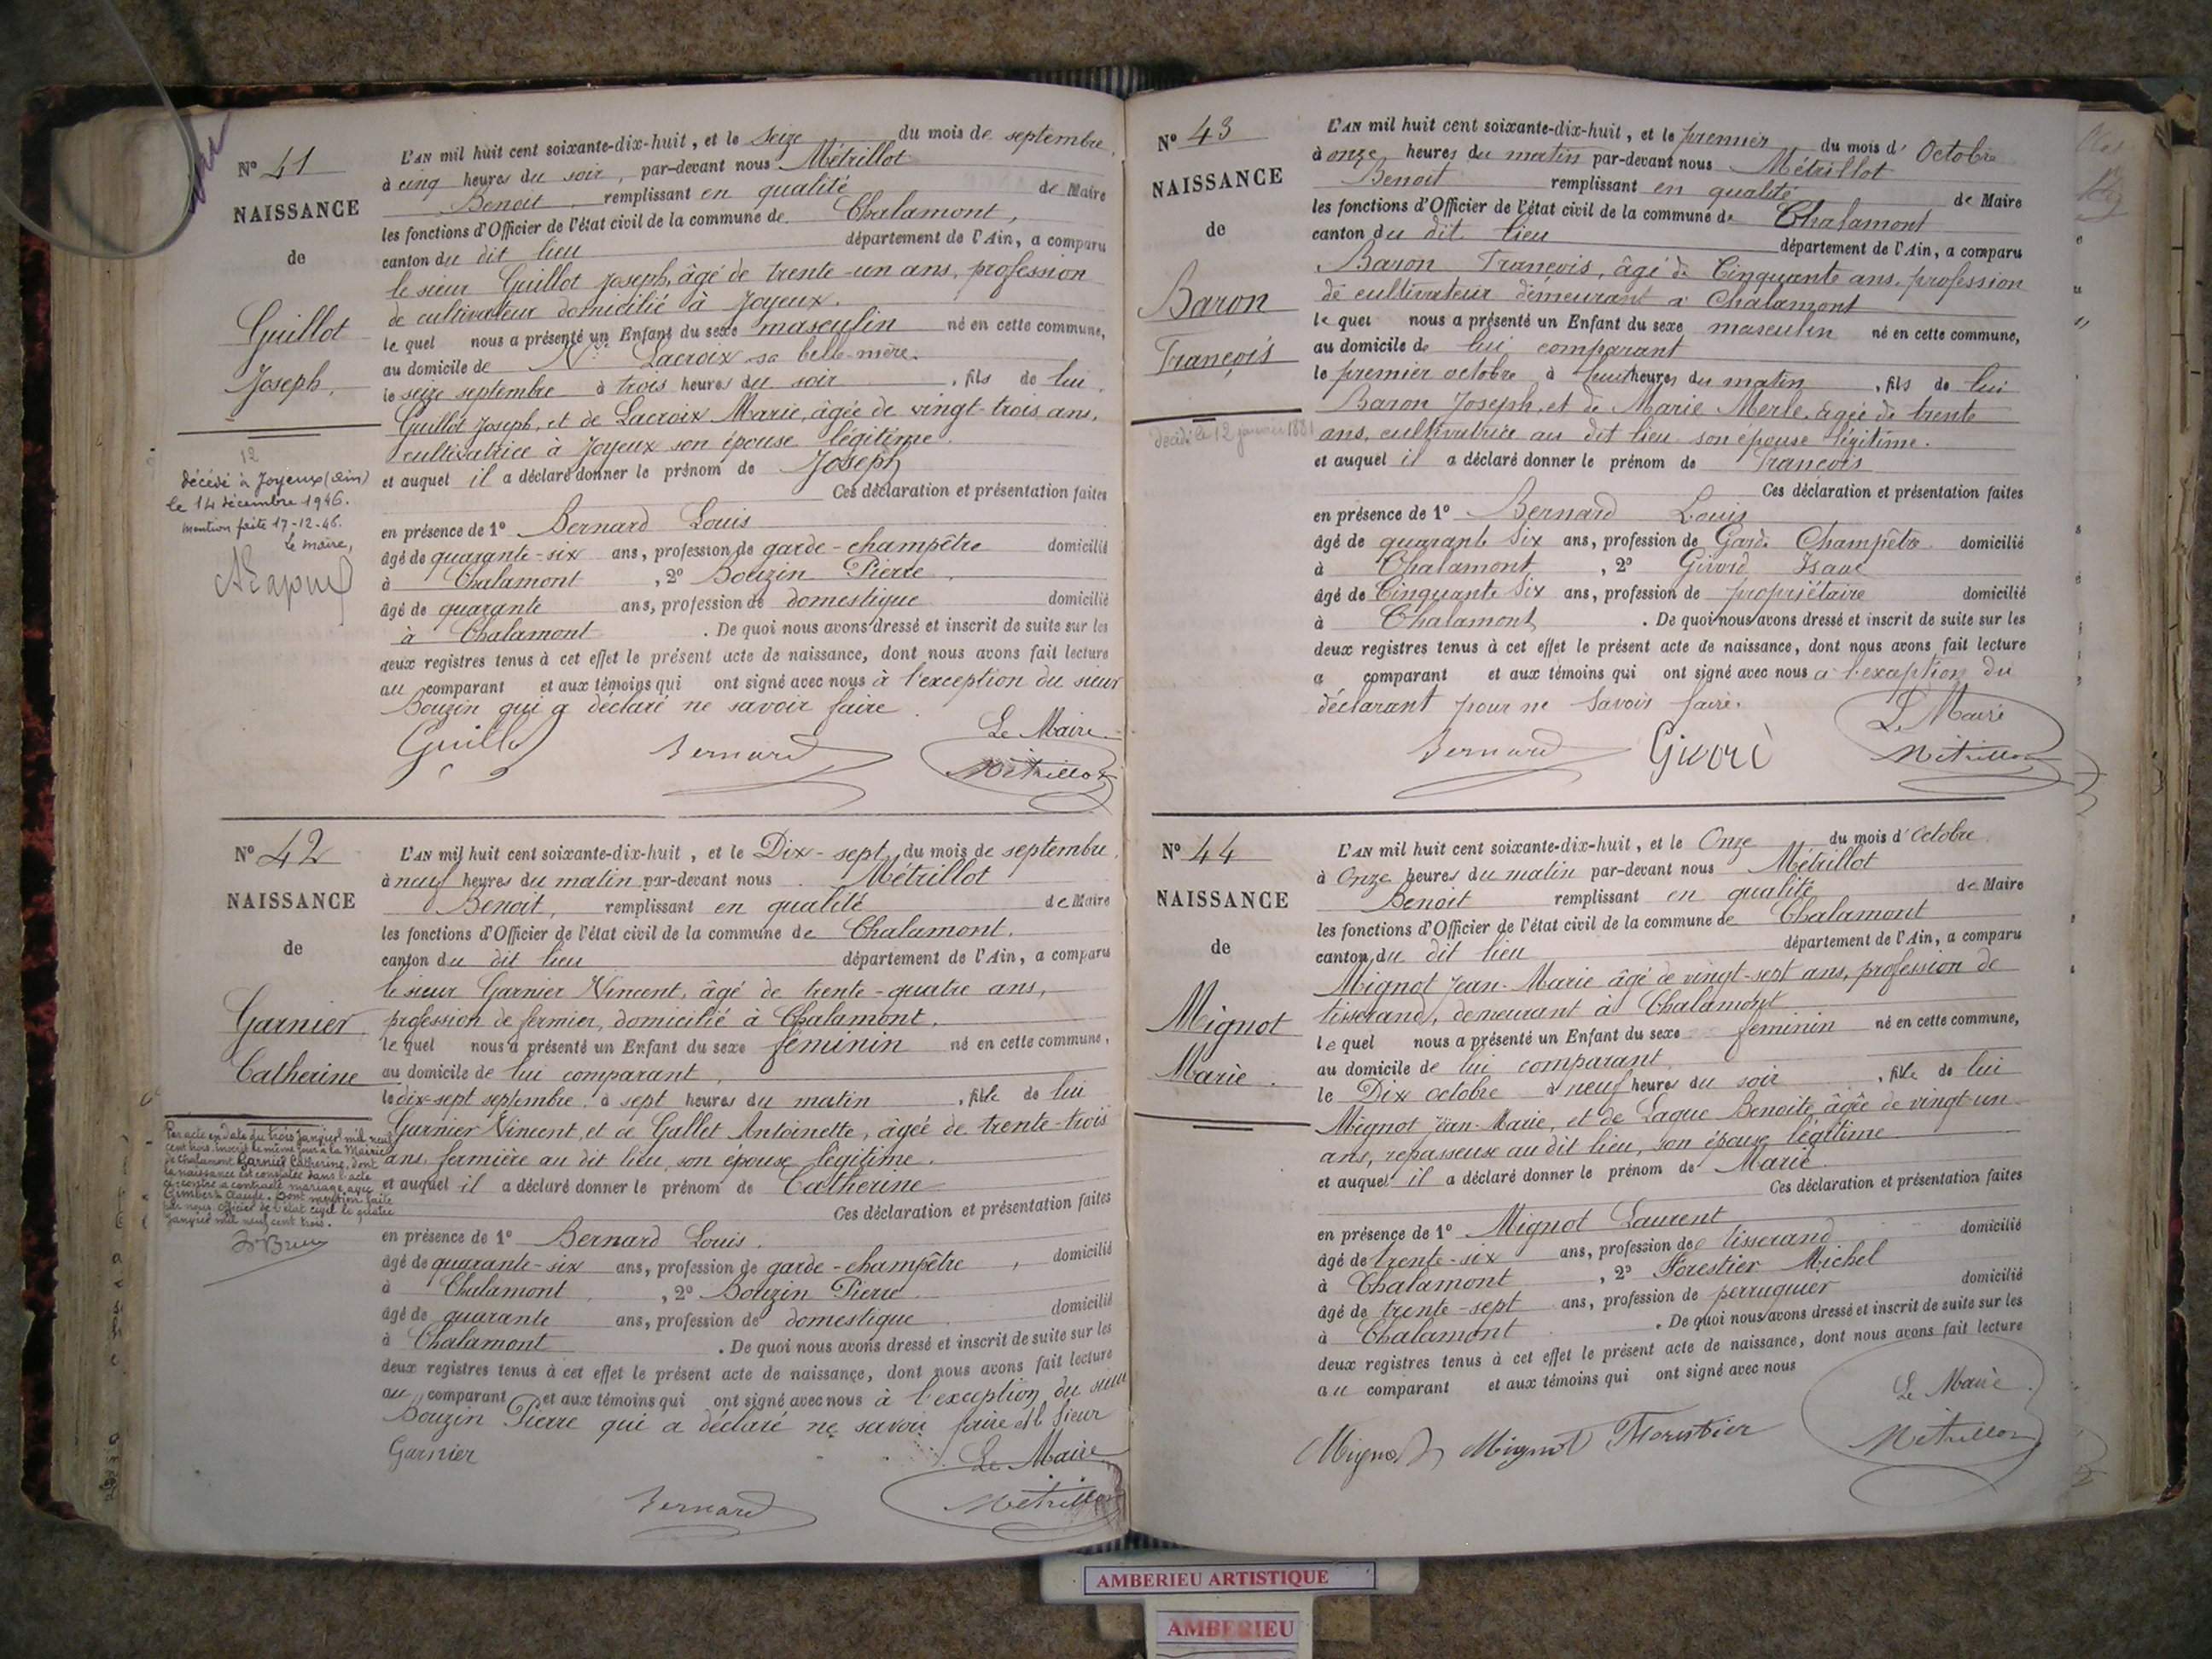 N° 41
NAISSANCE
de
Guillot
Joseph.
12
décédé à Joyeux (Ain)
le 14 décembre 1946.
mention faite 17-12-46.
Le maire,
L'AN mil huit cent soixante-dix-huit, et le Seize du mois de septembre,
à cinq heures du soir, par-devant nous Métrillot
Benoit remplissant en qualité de Maire
les fonctions d'Officier de l'état civil de la commune de Chalamont,
canton du dit lieu département de l'Ain, a comparu
le sieur Guillot Joseph, âgé de trente-un ans, profession
de cultivateur domicilié à Joyeux.
le quel nous a présenté un Enfant du sexe masculin né en cette commune,
au domicile de Lacroix sa belle-mère.
le seize septembre à trois heures du soir, fils de lui,
Guillot Joseph, et de Lacroix Marie, âgée de vingt-trois ans,
cultivatrice à Joyeux son épouse légitime.
et auquel il a déclaré donner le prénom de Joseph
Ces déclaration et présentation faites
en présence de 1° Bernard Louis
âgé de quarante-six ans, profession de garde-champêtre domicilié
à Chalamont, 2° Bouzin Pierre
âgé de quarante ans, profession de domestique domicilié
à Chalamont. De quoi nous avons dressé et inscrit de suite sur les
deux registres tenus à cet effet le présent acte de naissance, dont nous avons fait lecture
au comparant et aux témoins qui ont signé avec nous à l'exception du sieur
Bouzin qui a déclaré ne savoir faire
Le Maire
Guillot Bernard Métrillot
N° 42
NAISSANCE
de
Garnier
Catherine
Par acte en date du trois Janvier mil neuf
cent trois, inscrit le même jour à la Mairie
de Chalamont Garnier Catherine, dont
la naissance est constatée dans l'acte
ci-contre a contracté mariage avec
Gimbert Claude. Dont mention faite
par nous officier de l'état civil le quatre
Janvier mil neuf cent trois.
L'AN mil huit cent soixante-dix-huit, et le Dix-sept du mois de septembre,
à neuf heures du matin par-devant nous Métrillot
Benoit, remplissant en qualité de Maire
les fonctions d'Officier de l'état civil de la commune de Chalamont.
canton du dit lieu département de l'Ain, a comparu
le sieur Garnier Vincent, âgé de trente-quatre ans,
profession de fermier, domicilié à Chalamont.
le quel nous a présenté un Enfant du sexe féminin né en cette commune,
au domicile de lui comparant,
le dix-sept septembre, à sept heures du matin, fille de lui
Garnier Vincent, et de Gallet Antoinette, âgée de trente-trois
ans, fermière au dit lieu, son épouse légitime.
et auquel il a déclaré donner le prénom de Catherine
Ces déclaration et présentation faites
en présence de 1° Bernard Louis.
âgé de quarante-six ans, profession de garde-champêtre, domicilié
à Chalamont, 2° Bouzin Pierre
âgé de quarante ans, profession de domestique domicilié
à Chalamont. De quoi nous avons dressé et inscrit de suite sur les
deux registres tenus à cet effet le présent acte de naissance, dont nous avons fait lecture
au comparant et aux témoins qui ont signé avec nous à l'exception du sieur
Bouzin Pierre qui a déclaré ne savoir faire et le sieur
Garnier
Le Maire
Bernard Métrillot
N° 43
NAISSANCE
de
Baron
François
décédé le 12 janvier 1881
L'AN mil huit cent soixante-dix-huit, et le premier du mois d' Octobre
à onze heures du matin par-devant nous Métrillot
Benoit remplissant en qualité de Maire
les fonctions d'Officier de l'état civil de la commune de Chalamont
canton du dit lieu département de l'Ain, a comparu
Baron François, âgé de Cinquante ans, profession
de cultivateur demeurant à Chalamont
le quel nous a présenté un Enfant du sexe masculin né en cette commune,
au domicile de lui comparant
le premier octobre à heures du matin, fils de lui
Baron Joseph, et de Marie Merle, âgée de trente
ans, cultivatrice au dit lieu son épouse légitime.
et auquel il a déclaré donner le prénom de François
Ces déclaration et présentation faites
en présence de 1° Bernard Louis
âgé de quarante Six ans, profession de Garde Champêtre domicilié
à Chalamont, 2° Givord Isaac
âgé de Cinquante Six ans, profession de propriétaire domicilié
à Chalamont. De quoi nous avons dressé et inscrit de suite sur les
deux registres tenus à cet effet le présent acte de naissance, dont nous avons fait lecture
a comparant et aux témoins qui ont signé avec nous a l'exception du
déclarant pour ne Savoir faire.
Le Maire
Bernard Métrillot
N° 44
NAISSANCE
de
Mignot
Marie.
L'AN mil huit cent soixante-dix-huit, et le Onze du mois d' Octobre
à Onze heures du matin par-devant nous Métrillot
Benoit remplissant en qualité de Maire
les fonctions d'Officier de l'état civil de la commune de Chalamont
canton du dit lieu département de l'Ain, a comparu
Mignot Jean-Marie âgé de vingt-sept ans, profession de
tisserand, demeurant à Chalamont
le quel nous a présenté un Enfant du sexe féminin né en cette commune,
au domicile de lui comparant
le Dix octobre à neuf heures du soir, fille de lui
Mignot Jean-Marie, et de Lague Benoite, âgée de vingt-un
ans, repasseuse au dit lieu, son épouse légitime
et auquel il a déclaré donner le prénom de Marie
Ces déclaration et présentation faites
en présence de 1° Mignot Laurent
âgé de trente-six ans, profession de tisserand domicilié
à Chalamont, 2° Forestier Michel
âgé de trente-sept ans, profession de perruquier domicilié
à Chalamont. De quoi nous avons dressé et inscrit de suite sur les
deux registres tenus à cet effet le présent acte de naissance, dont nous avons fait lecture
au comparant et aux témoins qui ont signé avec nous
Le Maire
Mignot Mignot Forestier Métrillot
AMBERIEU ARTISTIQUE
AMBERIEU